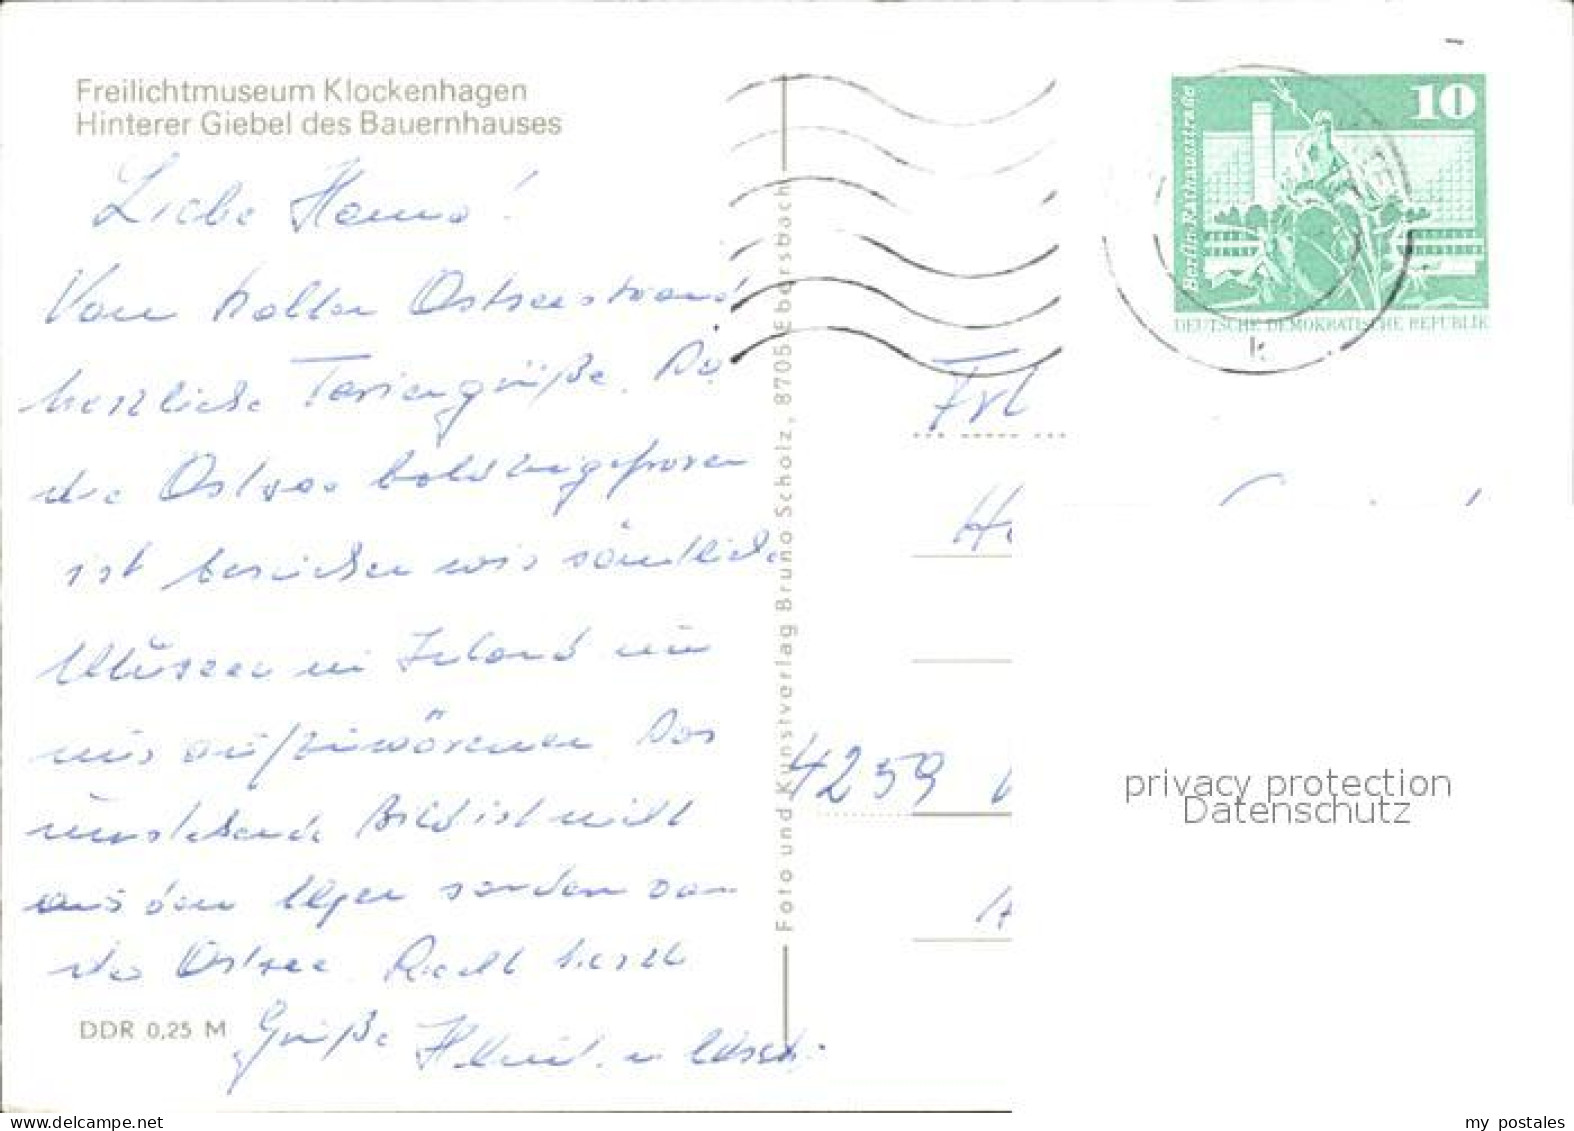 Freilichtmuseum Klockenhagen
Hinterer Giebel des Bauernhauses
Liebe Hanna!
Vom kalten Ostseestrand
herzliche Feriengrüße. Da
die Ostsee bald zugefroren
ist besuchen wir sämtliche
Museen im Inland um
uns aufzuwärmen. Das
umstehende Bild ist nicht
aus den Alpen sondern von
der Ostsee. Recht herzl.
Grüße
DDR 0,25 M
Foto und Kunstverlag Bruno Scholz, 8705 Ebersbach
Berlin-Rathausstraße
10
DEUTSCHE DEMOKRATISCHE REPUBLIK
k
Frl
4259
privacy protection
Datenschutz
my postales